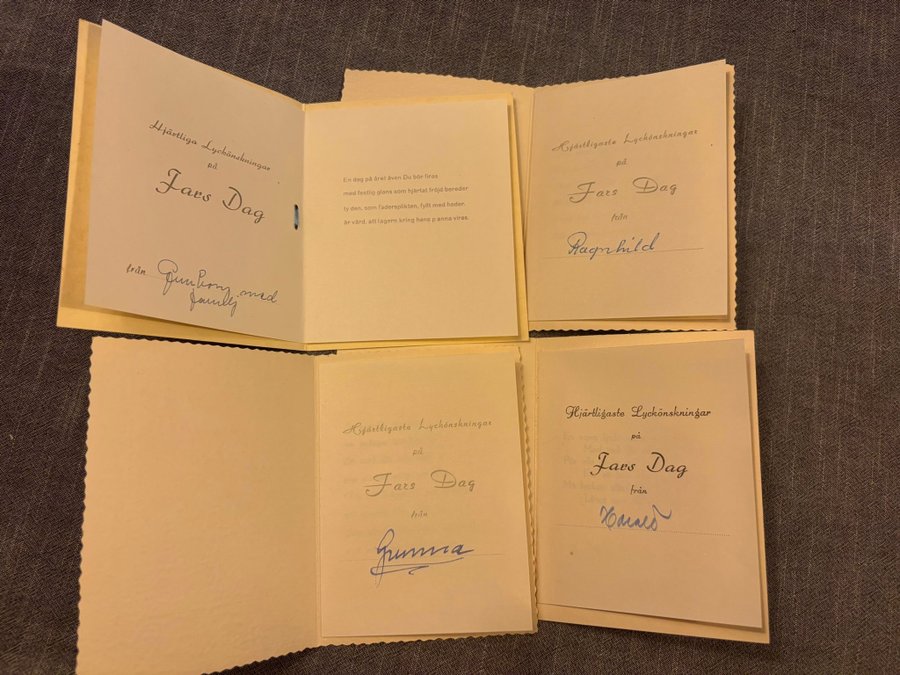 Hjärtliga Lyckönskningar
på
Fars Dag
från Gunborg med
familj
En dag på året även Du bör firas
med festlig glans som hjärtat fröjd bereder
ty den, som fadersplikten, fyllt med heder,
är värd, att lagern kring hans panna viras.
Hjärtligaste Lyckönskningar
på
Fars Dag
från
Ragnhild
Hjärtligaste Lyckönskningar
på
Fars Dag
från
Gunma
Hjärtligaste Lyckönskningar
på
Fars Dag
från
Harald